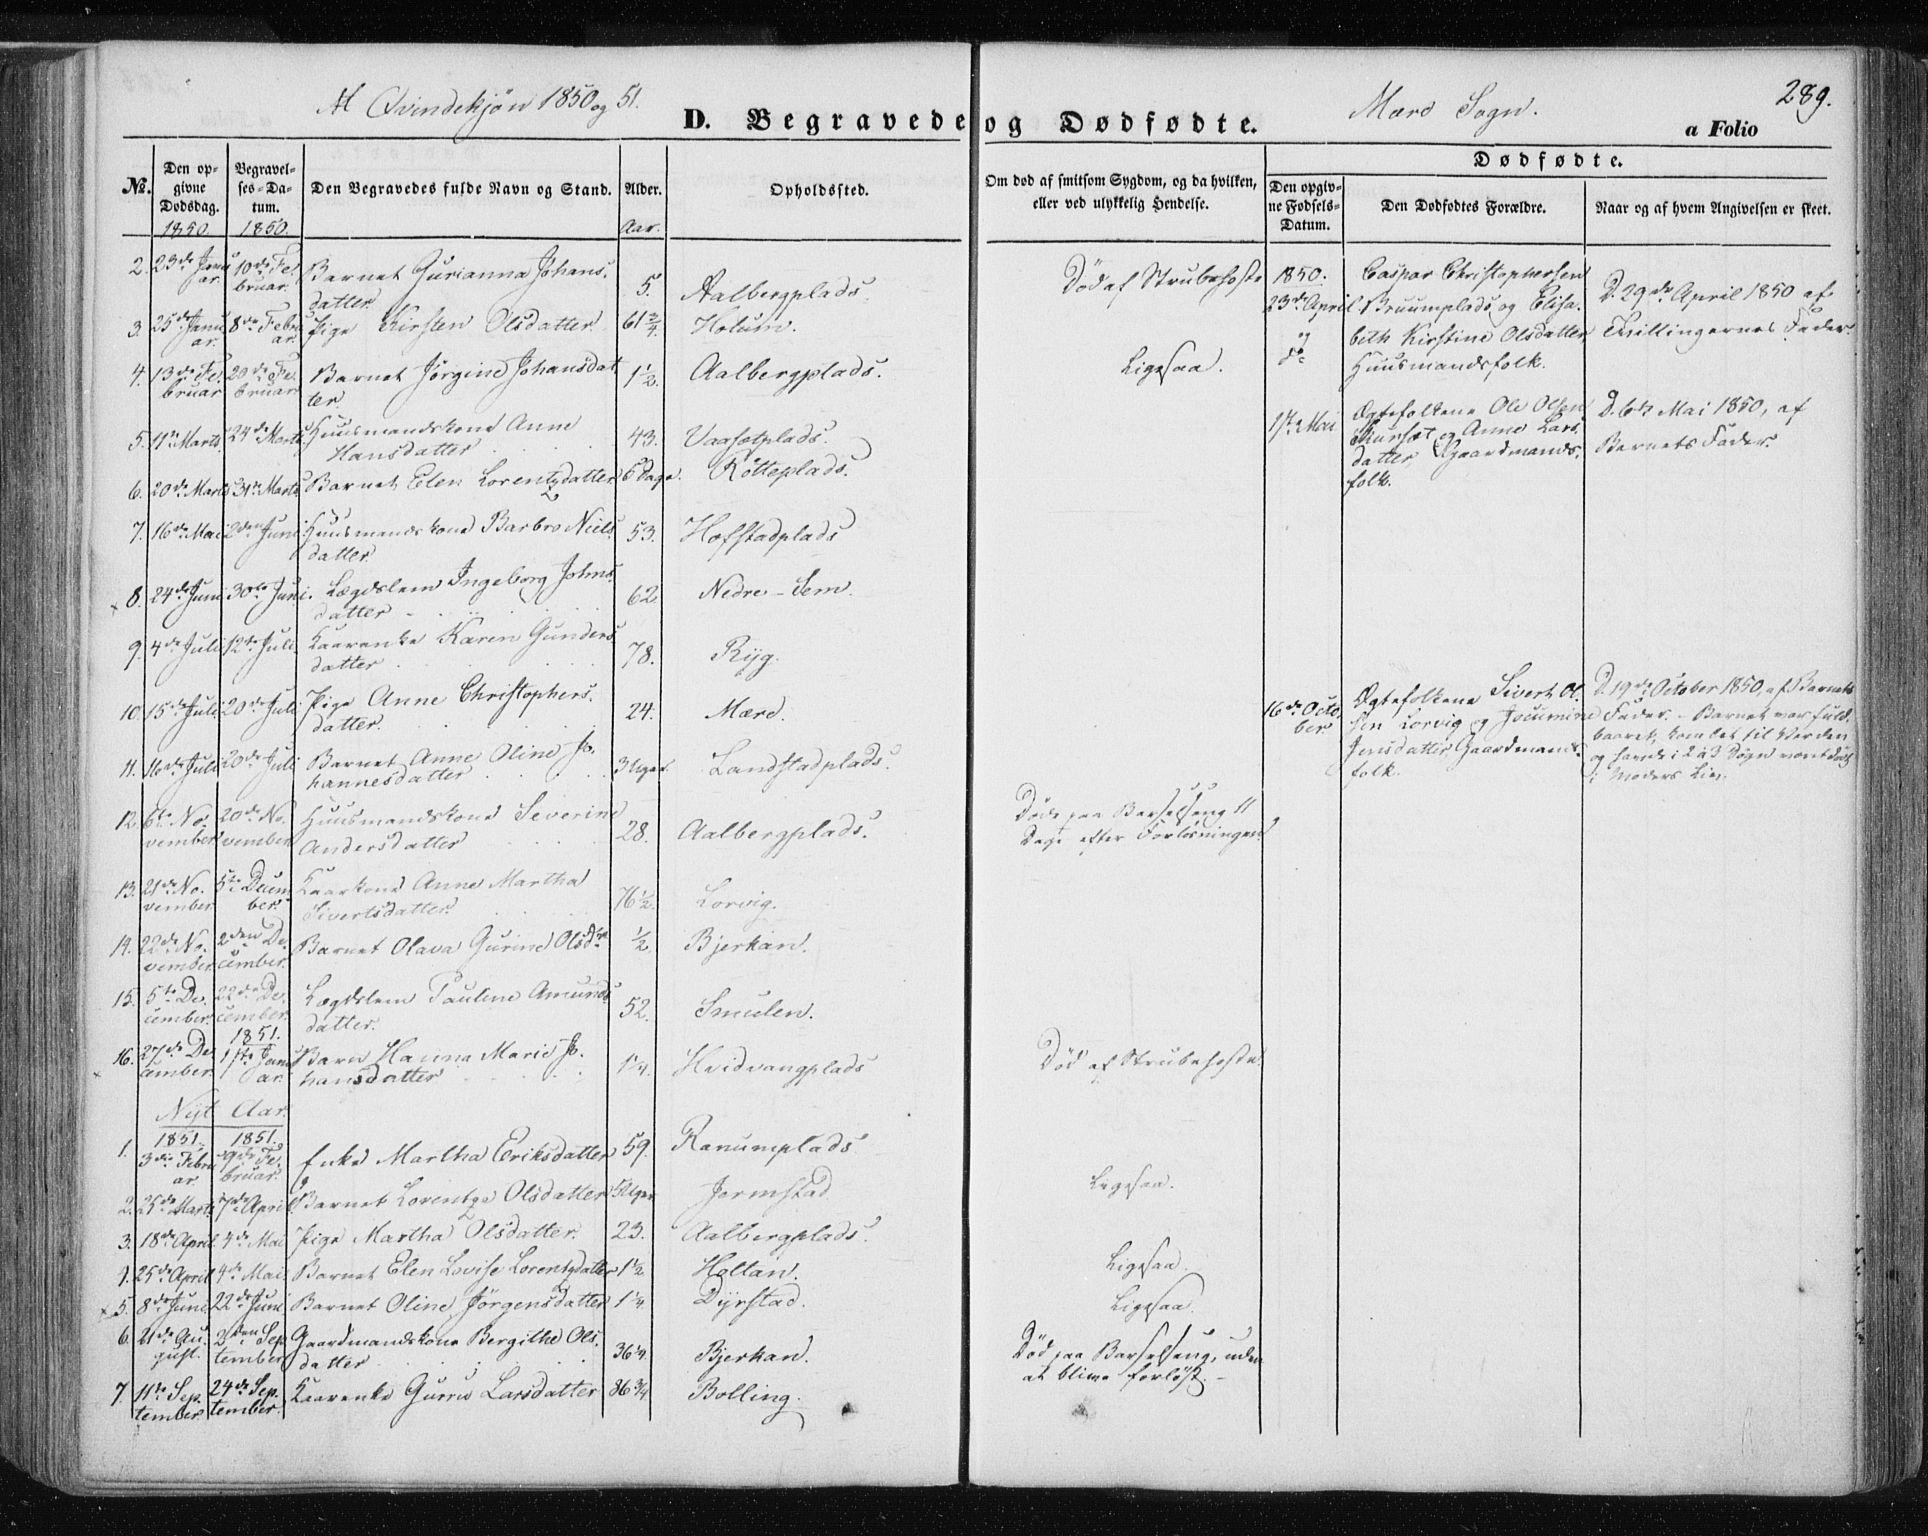 Af Qvindekjön 1850 og 51.
D. Begravede og Dødfødte.
Mære Sogn.
289.
a Folio
No.
Den opgivne Dødsdag.
Begravelses-Datum.
Den Begravedes fulde Navn og Stand.
Alder.
Opholdssted.
Om død af smitsom Sygdom, og da hvilken, eller ved ulykkelig Hendelse.
Dødfødte.
Den opgivne Fødsels-Datum.
Den Dødfødtes Forældre.
Naar og af hvem Angivelsen er skeet.
1850. 1850. Aar.
2. 23de Januar. 10de Februar. Barnet Gurianna Johansdatter 5. Aalbergplads. Död af Strubehoste
3. 25de Januar. 8de Februar. Pige Kirsten Olsdatter 61 3/4. Holum.
4. 13de Februar 20de Februar Barnet Jörgine Johansdatter. 1 1/2. Aalbergplads. Ligesaa.
5. 11te Marts 24de Marts Huusmandskone Anne Hansdatter 43. Vaasetplads.
6. 20de Marts 31te Marts Barnet Elen Lorentzdatter 5 Dage. Rötteplads.
7. 16de Mai 2den Juni Huusmandskone Barbro Nielsdatter 53. Hofstadplads
8. 24de Juni 30te Juni. Lægdslem Ingeborg Johnsdatter 62. Nedre-Sem.
9. 4de Juli 12te Juli Kaarenke Karen Gundersdatter 78. Ryg.
10. 15de Juli 20de Juli Pige Anne Christophersdatter. 24. Mære.
11. 16de Juli 20de Juli Barnet Anne Oline Johannesdatter 3 Uger. Landstadplads.
12. 6te November 20de November Huusmandskone Severine Andersdatter 28. Aalbergplads. Döde paa Barselseng 11 Dage efter Forlösningen.
13. 21de November 5te December. Kaarkone Anne Martha Sivertsdatter. 76 1/2. Lorvig.
14. 22de November. 2den December. Barnet Olava Gurine Olsdtr. 1/2. Bjerkan.
15. 5te December. 22de December. Lægdslem Pauline Amundsdatter. 52. Smulen.
1851.
16. 27de December. 1ste Januar. Barn Hanna Marie Johansdatter 1 1/4. Hvidvangplads Död af Strubehoste.
Nyt Aar.
1851. 1851.
1. 3die Februar. 9de Februar. Enke Martha Eriksdatter 59. Ranumplads
2. 25de Marts 7de April Barnet Lorentze Olsdatter 5 Uger Jermstad. Ligesaa.
3. 18de April 4de Mai Pige Martha Olsdatter. 23. Aalbergplads.
4. 25de April 4de Mai Barnet Elen Lovise Lorentzdatter 1 1/2 Holtan. Ligesaa.
5. 8de Juni 22de Juni Barnet Oline Jörgensdatter 1 1/4. Dyrstad. Ligesaa.
6. 21de August. 2den September Gaardmandskone Bergithe Olsdatter 36 1/4. Bjerkan. Död paa Barselseng, uden at blive forlöst.
7. 11te September 24de September. Kaarenke Gurru Larsdatter 86 3/4 Bolling.
1850.
23de April
og
do
Caspar Christophersen
Bruumplads og Elisa-
beth Kirstine Olsdatter
Huusmandsfolk.
D. 29de April 1850 af
Tvillingernes Fader.
1ste Mai
Ægtefolkene Ole Olsen
og Anne Lars-
datter, Gaardmands-
folk.
D. 6te Mai 1850, af
Barnets Fader.
16de Octo-
ber
Ægtefolkene Sivert Ol-
sen Lorvig og Jocumine
Jensdatter Gaardmands-
folk.
D. 19de October 1850, af Barnets
Fader. - Barnet var fuld-
baaret, kom det til Verden
og havde i 2 à 3 Dögn været död
i Moders Liv.